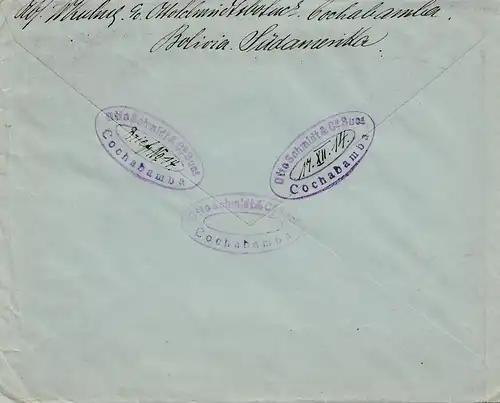 Abs. c/o Otto Schmidt & Co Sucs. Cochabamba.
Bolivia. Südamerika.
Otto Schmidt & Co. Sucs.
Brief No 14
Cochabamba
Otto Schmidt & Co. Sucs.
17. XII. 14.
Cochabamba
Otto Schmidt & Co. Sucs.
Cochabamba